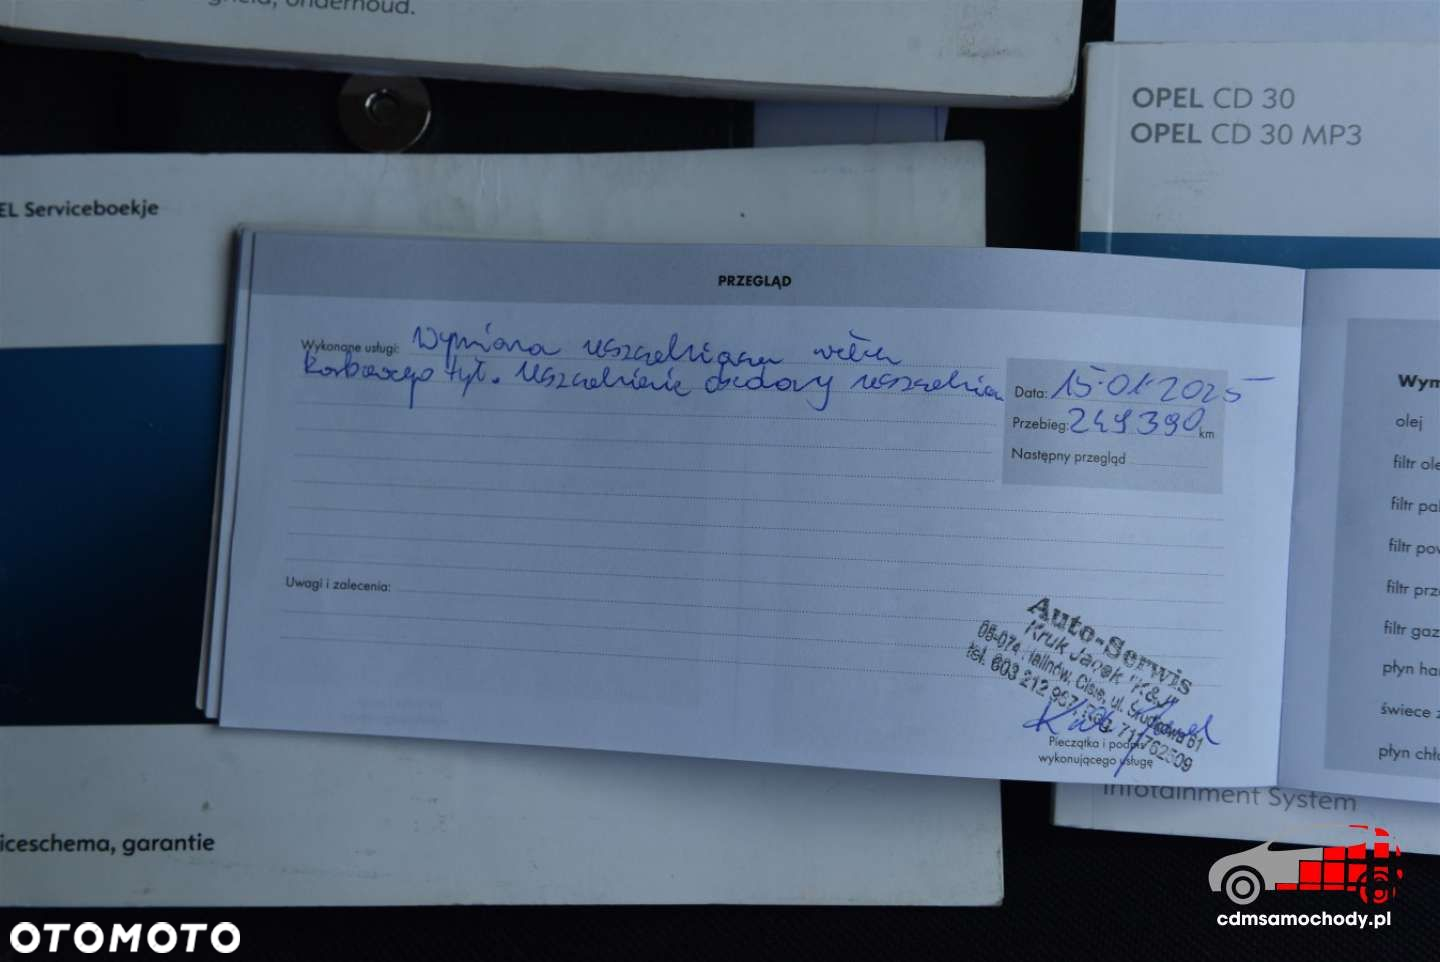 onderhoud.
OPEL CD 30
OPEL CD 30 MP3
EL Serviceboekje
PRZEGLĄD
Wykonane usługi: Wymiana uszczelniacza wału
korbowego tył. Uszczelnienie obudowy uszczelniacza
Data: 15-01-2025
Przebieg: 249390 km
Następny przegląd
Uwagi i zalecenia:
Auto-Serwis
Kruk Jacek "K&J"
05-074 Halinów, Cisie, ul.
tel. 603 212 937, 711762509
Pieczątka i podpis
wykonującego usługę
Wym
olej
filtr ole
filtr pal
filtr pow
filtr prze
filtr gaz
płyn ham
świece z
płyn chło
Infotainment System
iceschema, garantie
OTOMOTO
cdmsamochody.pl